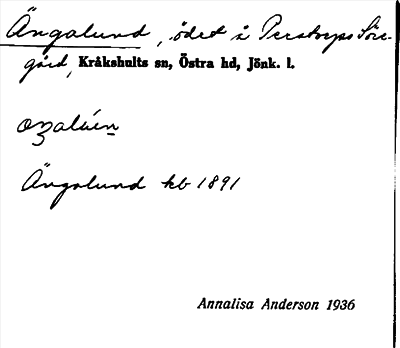 Ängalund, ödet å Perstorps Söre-
gård, Kråkshults sn, Östra hd, Jönk. l.
Ängalund kb 1891
Annalisa Anderson 1936